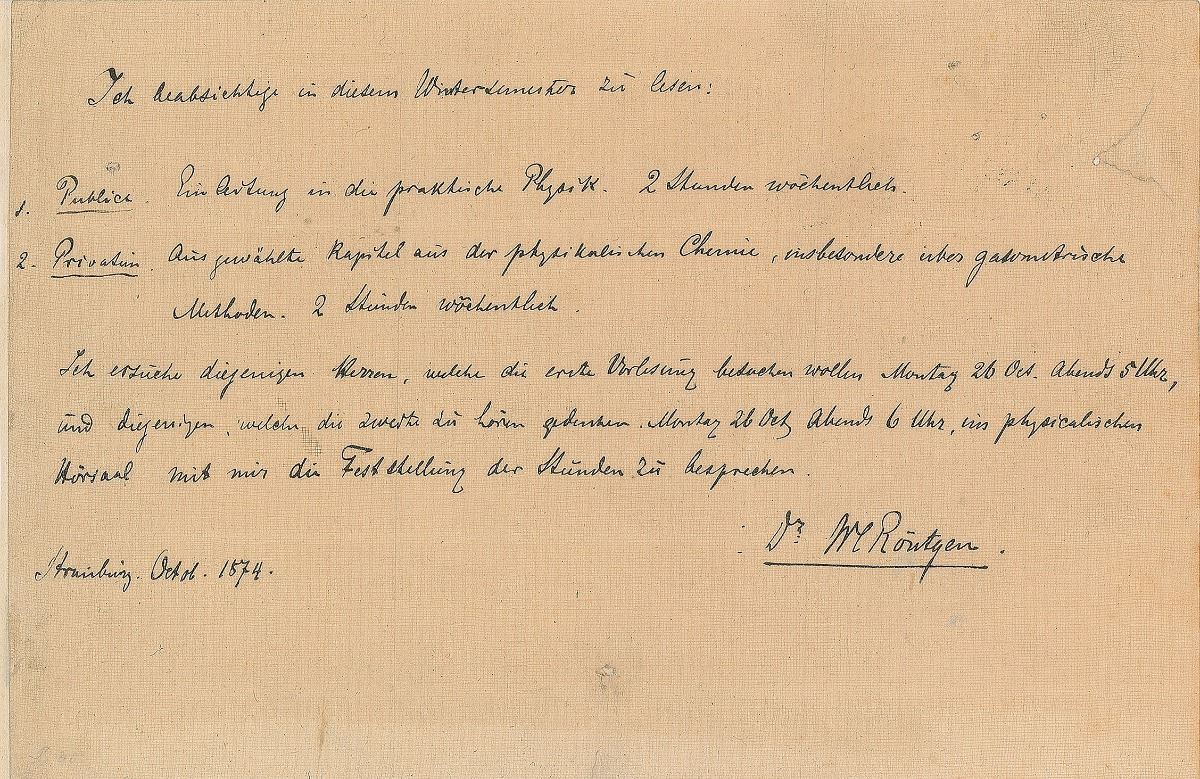 Ich beabsichtige in diesem Wintersemester zu lesen:
1. Publice. Einleitung in die praktische Physik. 2 Stunden wöchentlich.
2. Privatim. Ausgewählte Kapitel aus der physikalischen Chemie, insbesondere über gasometrische
Methoden. 2 Stunden wöchentlich.
Ich ersuche diejenigen Herren, welche die erste Vorlesung besuchen wollen Montag 26 Oct. Abends 5 Uhr,
und diejenigen, welche die zweite zu hören gedenken, Montag 26 Oct Abends 6 Uhr, im physicalischen
Hörsaal mit mir die Feststellung der Stunden zu besprechen.
Dr WC Röntgen.
Strassburg. Octob. 1874.